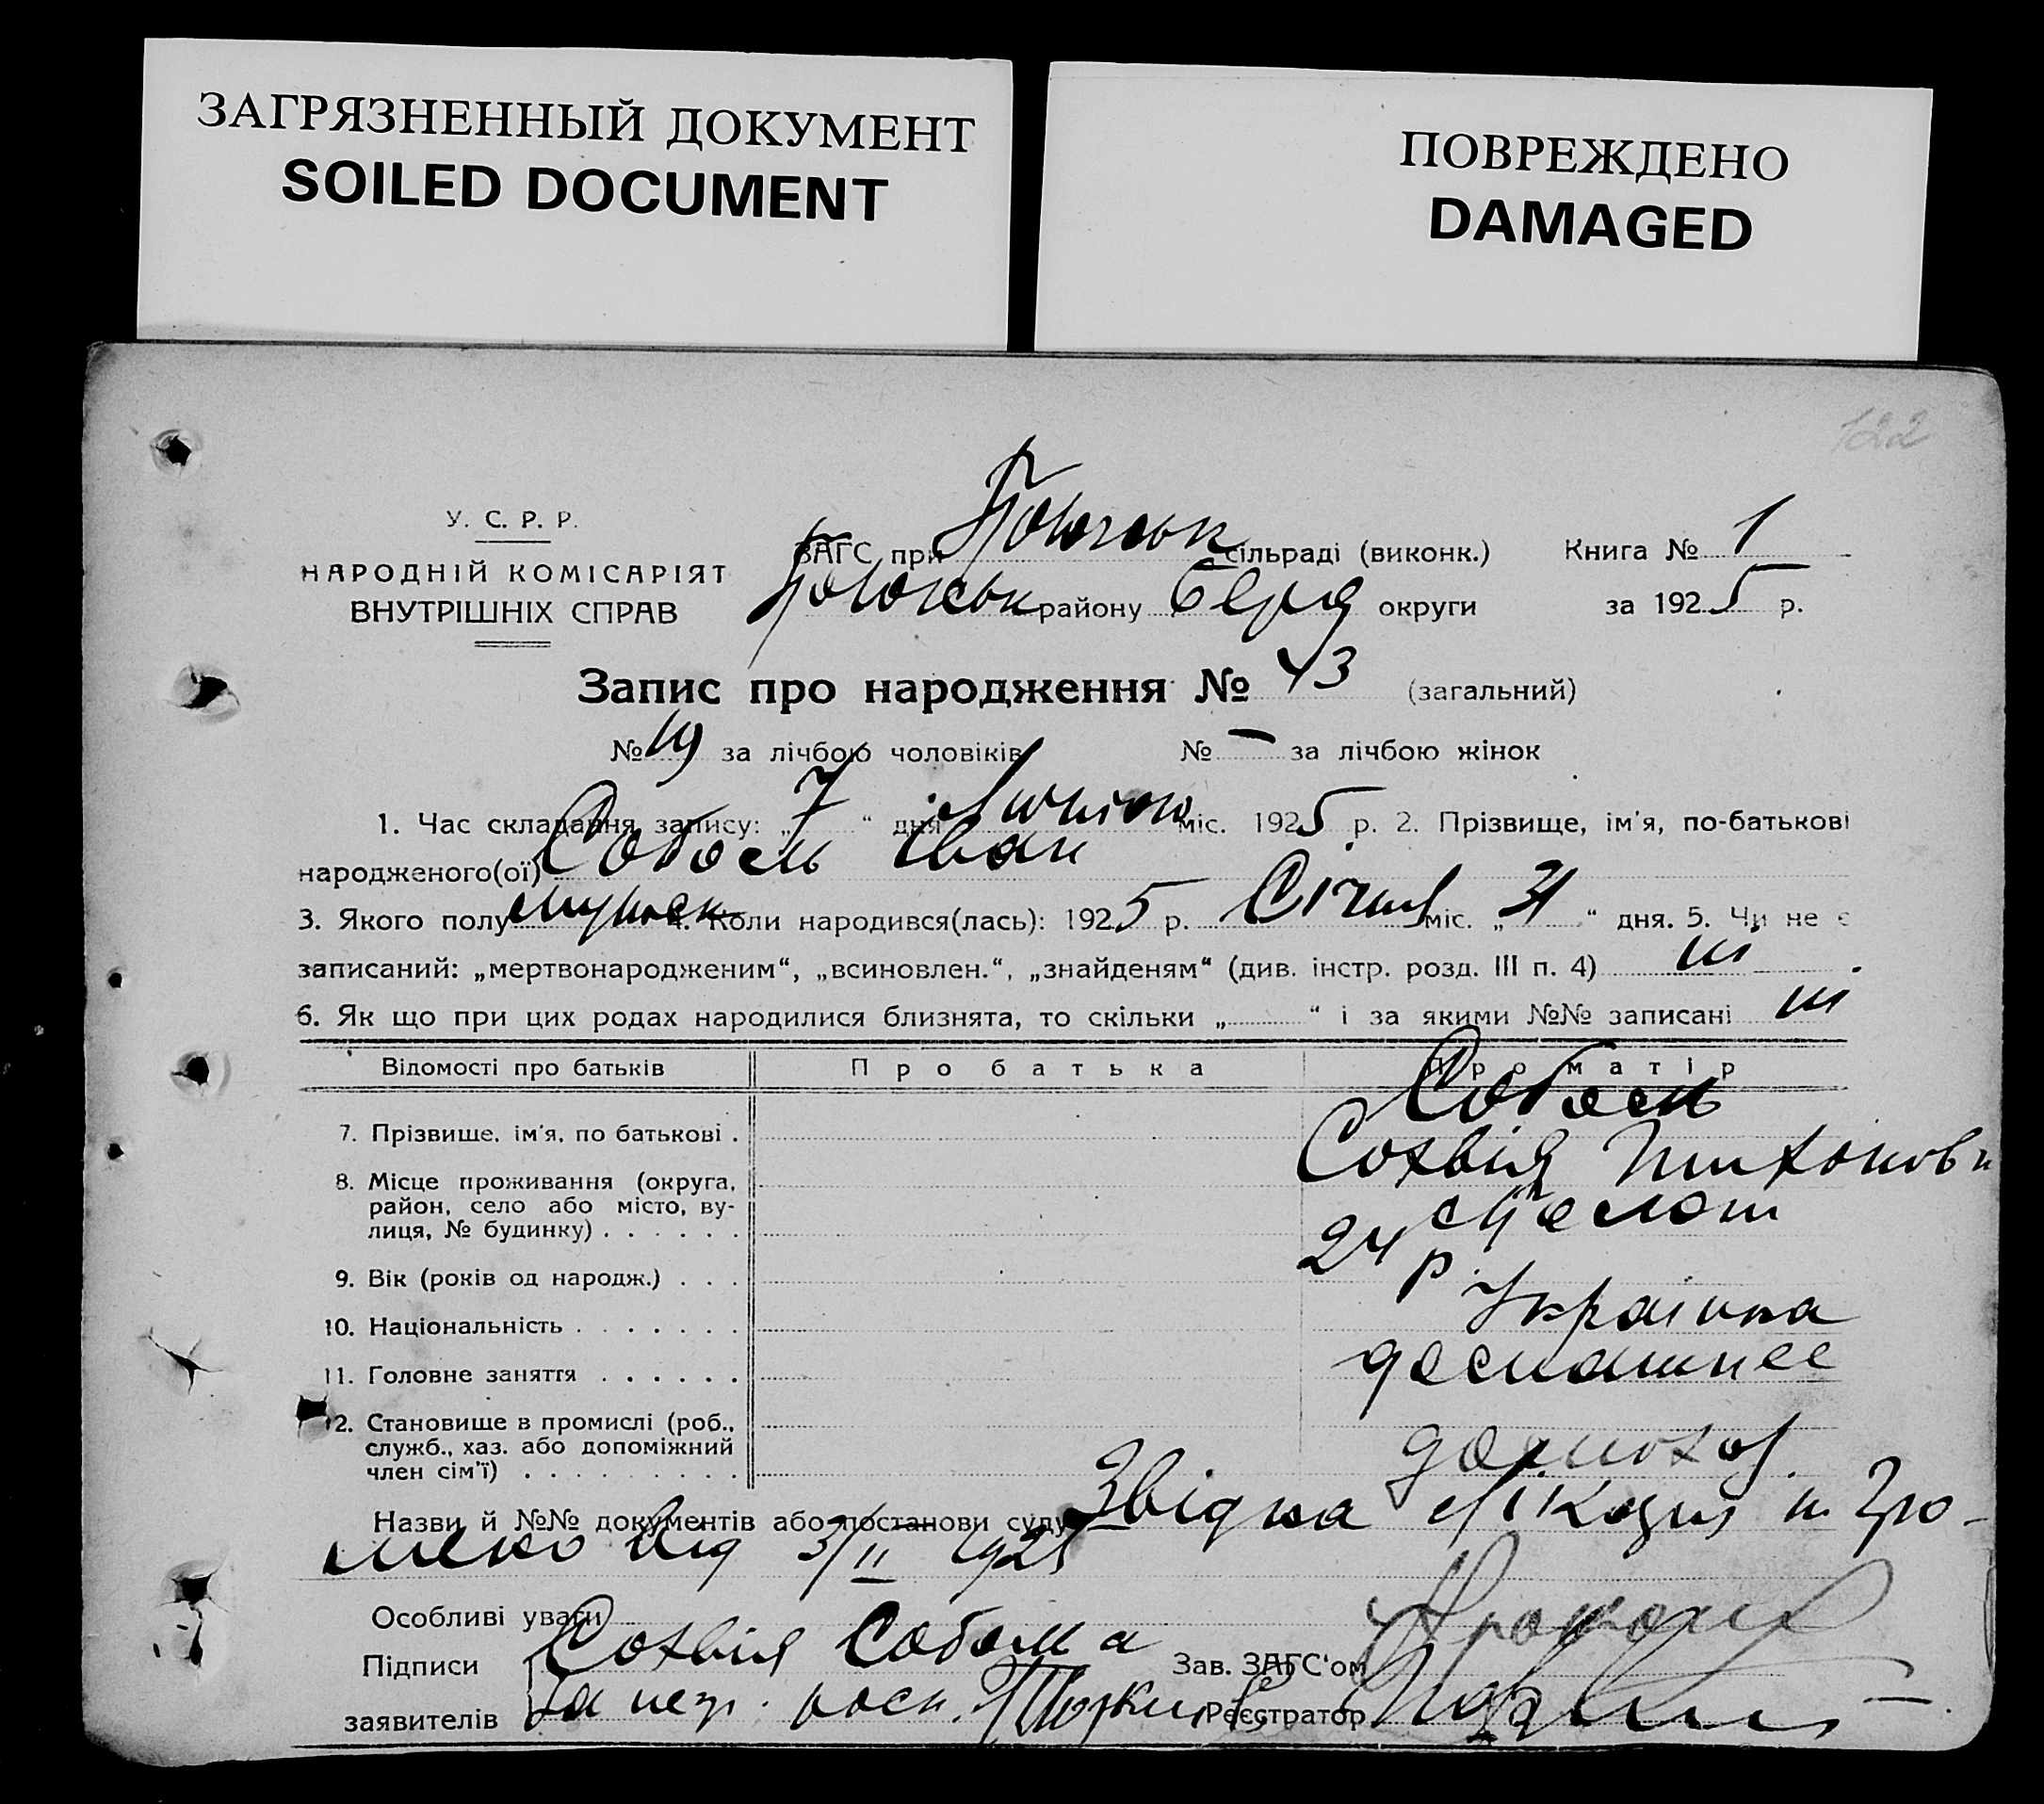 ЗАГРЯЗНЕННЫЙ ДОКУМЕНТ
SOILED DOCUMENT
ПОВРЕЖДЕНО
DAMAGED
122
У. С. Р. Р.
НАРОДНІЙ КОМІСАРІЯТ
ВНУТРІШНІХ СПРАВ
ЗАГС при сільраді (виконк.) Книга № 1
району Берд округи за 1925 р.
Запис про народження № 43 (загальний)
№ 19 за лічбою чоловіків № — за лічбою жінок
1. Час складання запису: „7“ дня міс. 1925 р. 2. Прізвище, ім'я, по-батькові
народженого(ої) Соболь Іван
3. Якого полу мужеск 4. Коли народився(лась): 1925 р. Січня міс. „31“ дня. 5. Чи не є
записаний: „мертвонародженим“, „всиновлен.“, „знайденям“ (див. інстр. розд. III п. 4) ні
6. Як що при цих родах народилися близнята, то скільки „ “ і за якими №№ записані ні
Відомості про батьків Про батька Про матір
7. Прізвище, ім'я, по батькові . Соболь
Софвія Тихоновн
8. Місце проживання (округа,
район, село або місто, ву-
лиця, № будинку) . . . . . .
9. Вік (років од народж.) . . . 24 р.
10. Національність . . . . . . . Українка
11. Головне заняття . . . . . . домашнее
12. Становище в промислі (роб.,
служб., хаз. або допоміжний
член сім'ї) . . . . . . . . . домохоз.
Назви й №№ документів або постанови суду Звідка
від 3/II 1925
Особливі уваги
Підписи Софвія Соболь
заявителів За негр.
Зав. ЗАГС'ом
Реєстратор